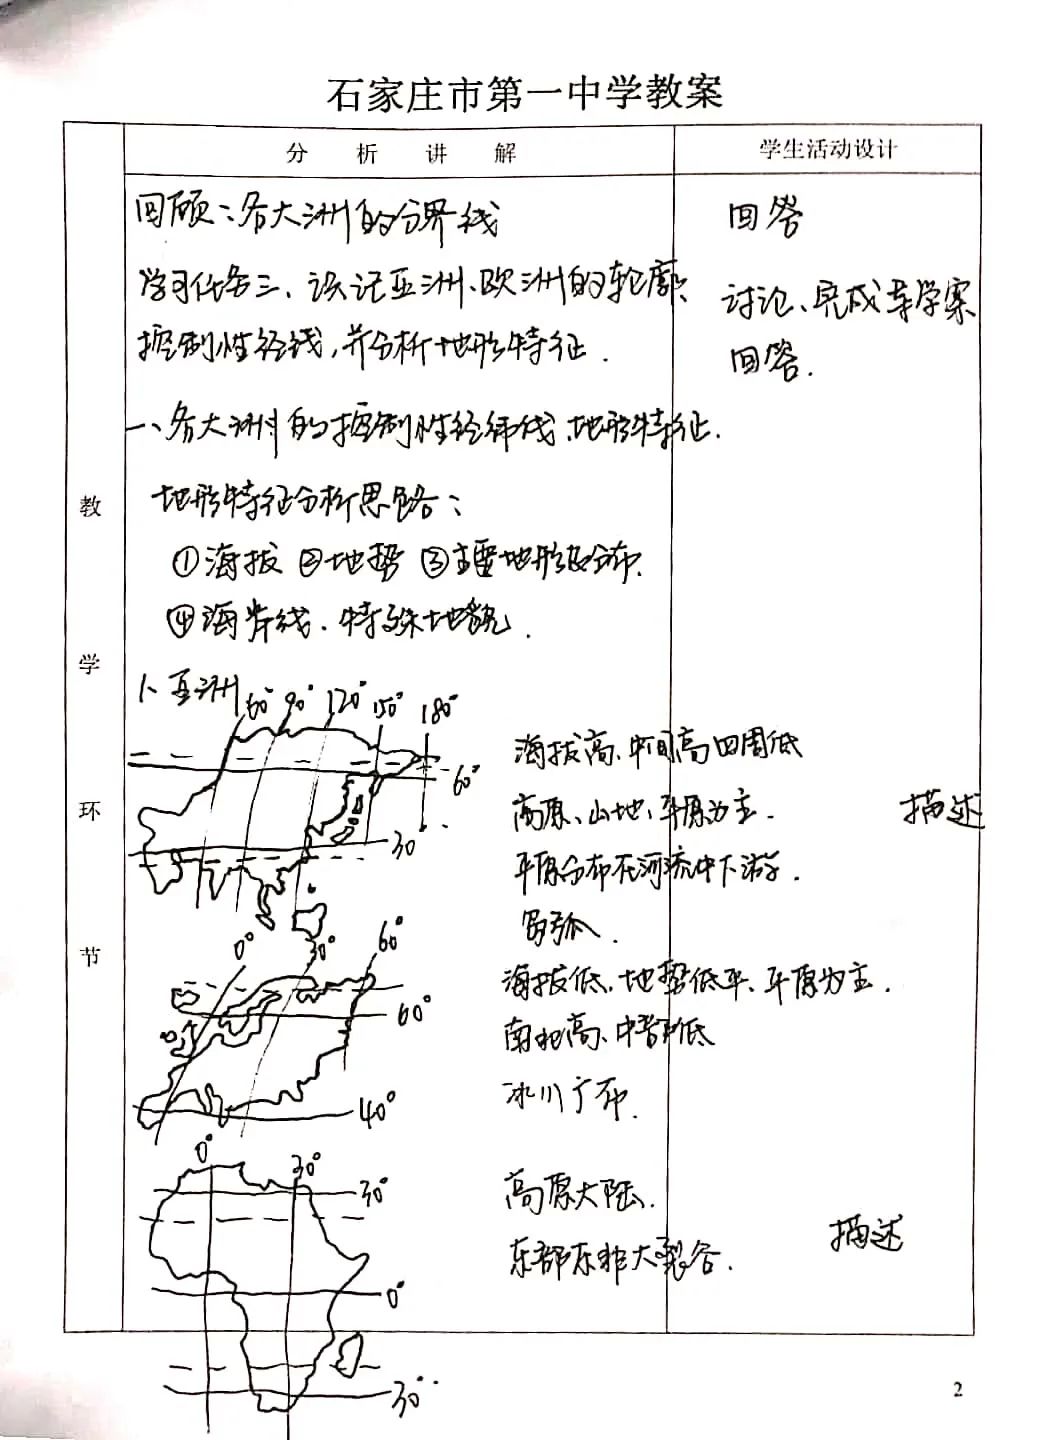 石家庄市第一中学教案
分析讲解
学生活动设计
回顾：各大洲的分界线
回答
学习任务三、识记亚洲、欧洲的轮廓、
控制性经线，并分析地形特征．
讨论、完成导学案
回答．
一、各大洲的控制性经纬线、地形特征．
地形特征分析思路：
①海拔 ②地势 ③主要地形及分布．
④海岸线．特殊地貌．
教
学
环
节
1、亚洲
60° 90° 120° 150° 180°
60°
30
海拔高、中间高四周低
高原、山地、平原为主．
描述
平原分布在河流中下游．
岛弧．
0° 30° 60°
60°
40°
海拔低、地势低平、平原为主．
南北高、中部低
冰川广布．
0° 30°
30°
0°
30°
高原大陆．
东部东非大裂谷．
描述
2